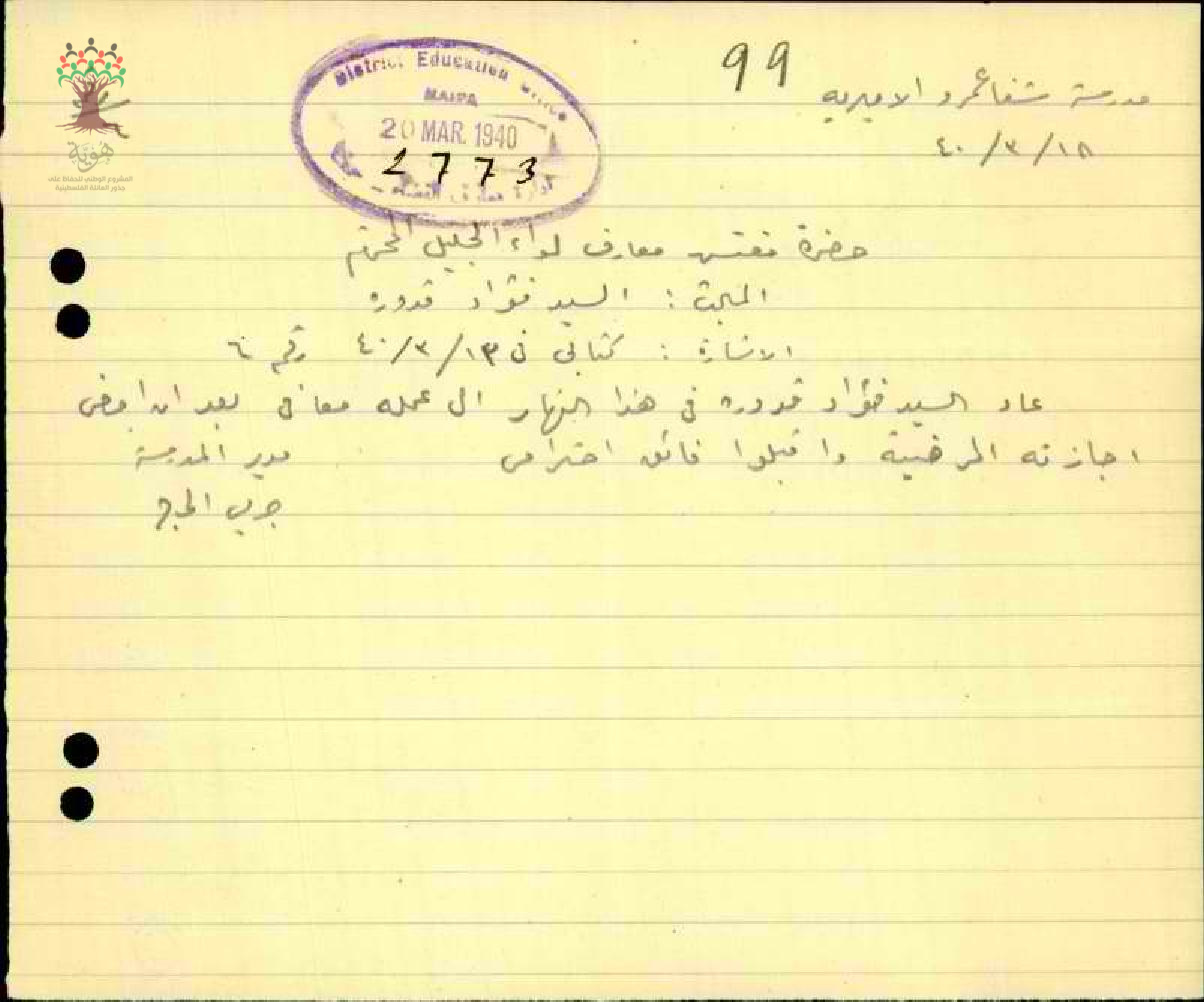 99
مدرسة شفاعمرو الاميريه
١٨/٣/٤٠
District Education Office
HAIFA
20 MAR. 1940
2773
ادارة معارف القضاء
هوية
المشروع الوطني للحفاظ على
جذور العائلة الفلسطينية
حضرة مفتش معارف لواء الجليل المحترم
المبحث : السيد فؤاد قدوره
الاشارة : كتابي في ١٣/٣/٤٠ رقم ٦
عاد السيد فؤاد قدوره في هذا النهار الى عمله معافى بعد ان امضى
اجازته المرضية واقبلوا فائق احترامي
مدير المدرسة